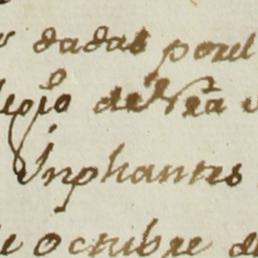 dadas por el
legio de Nra
Inphantes
de octubre de